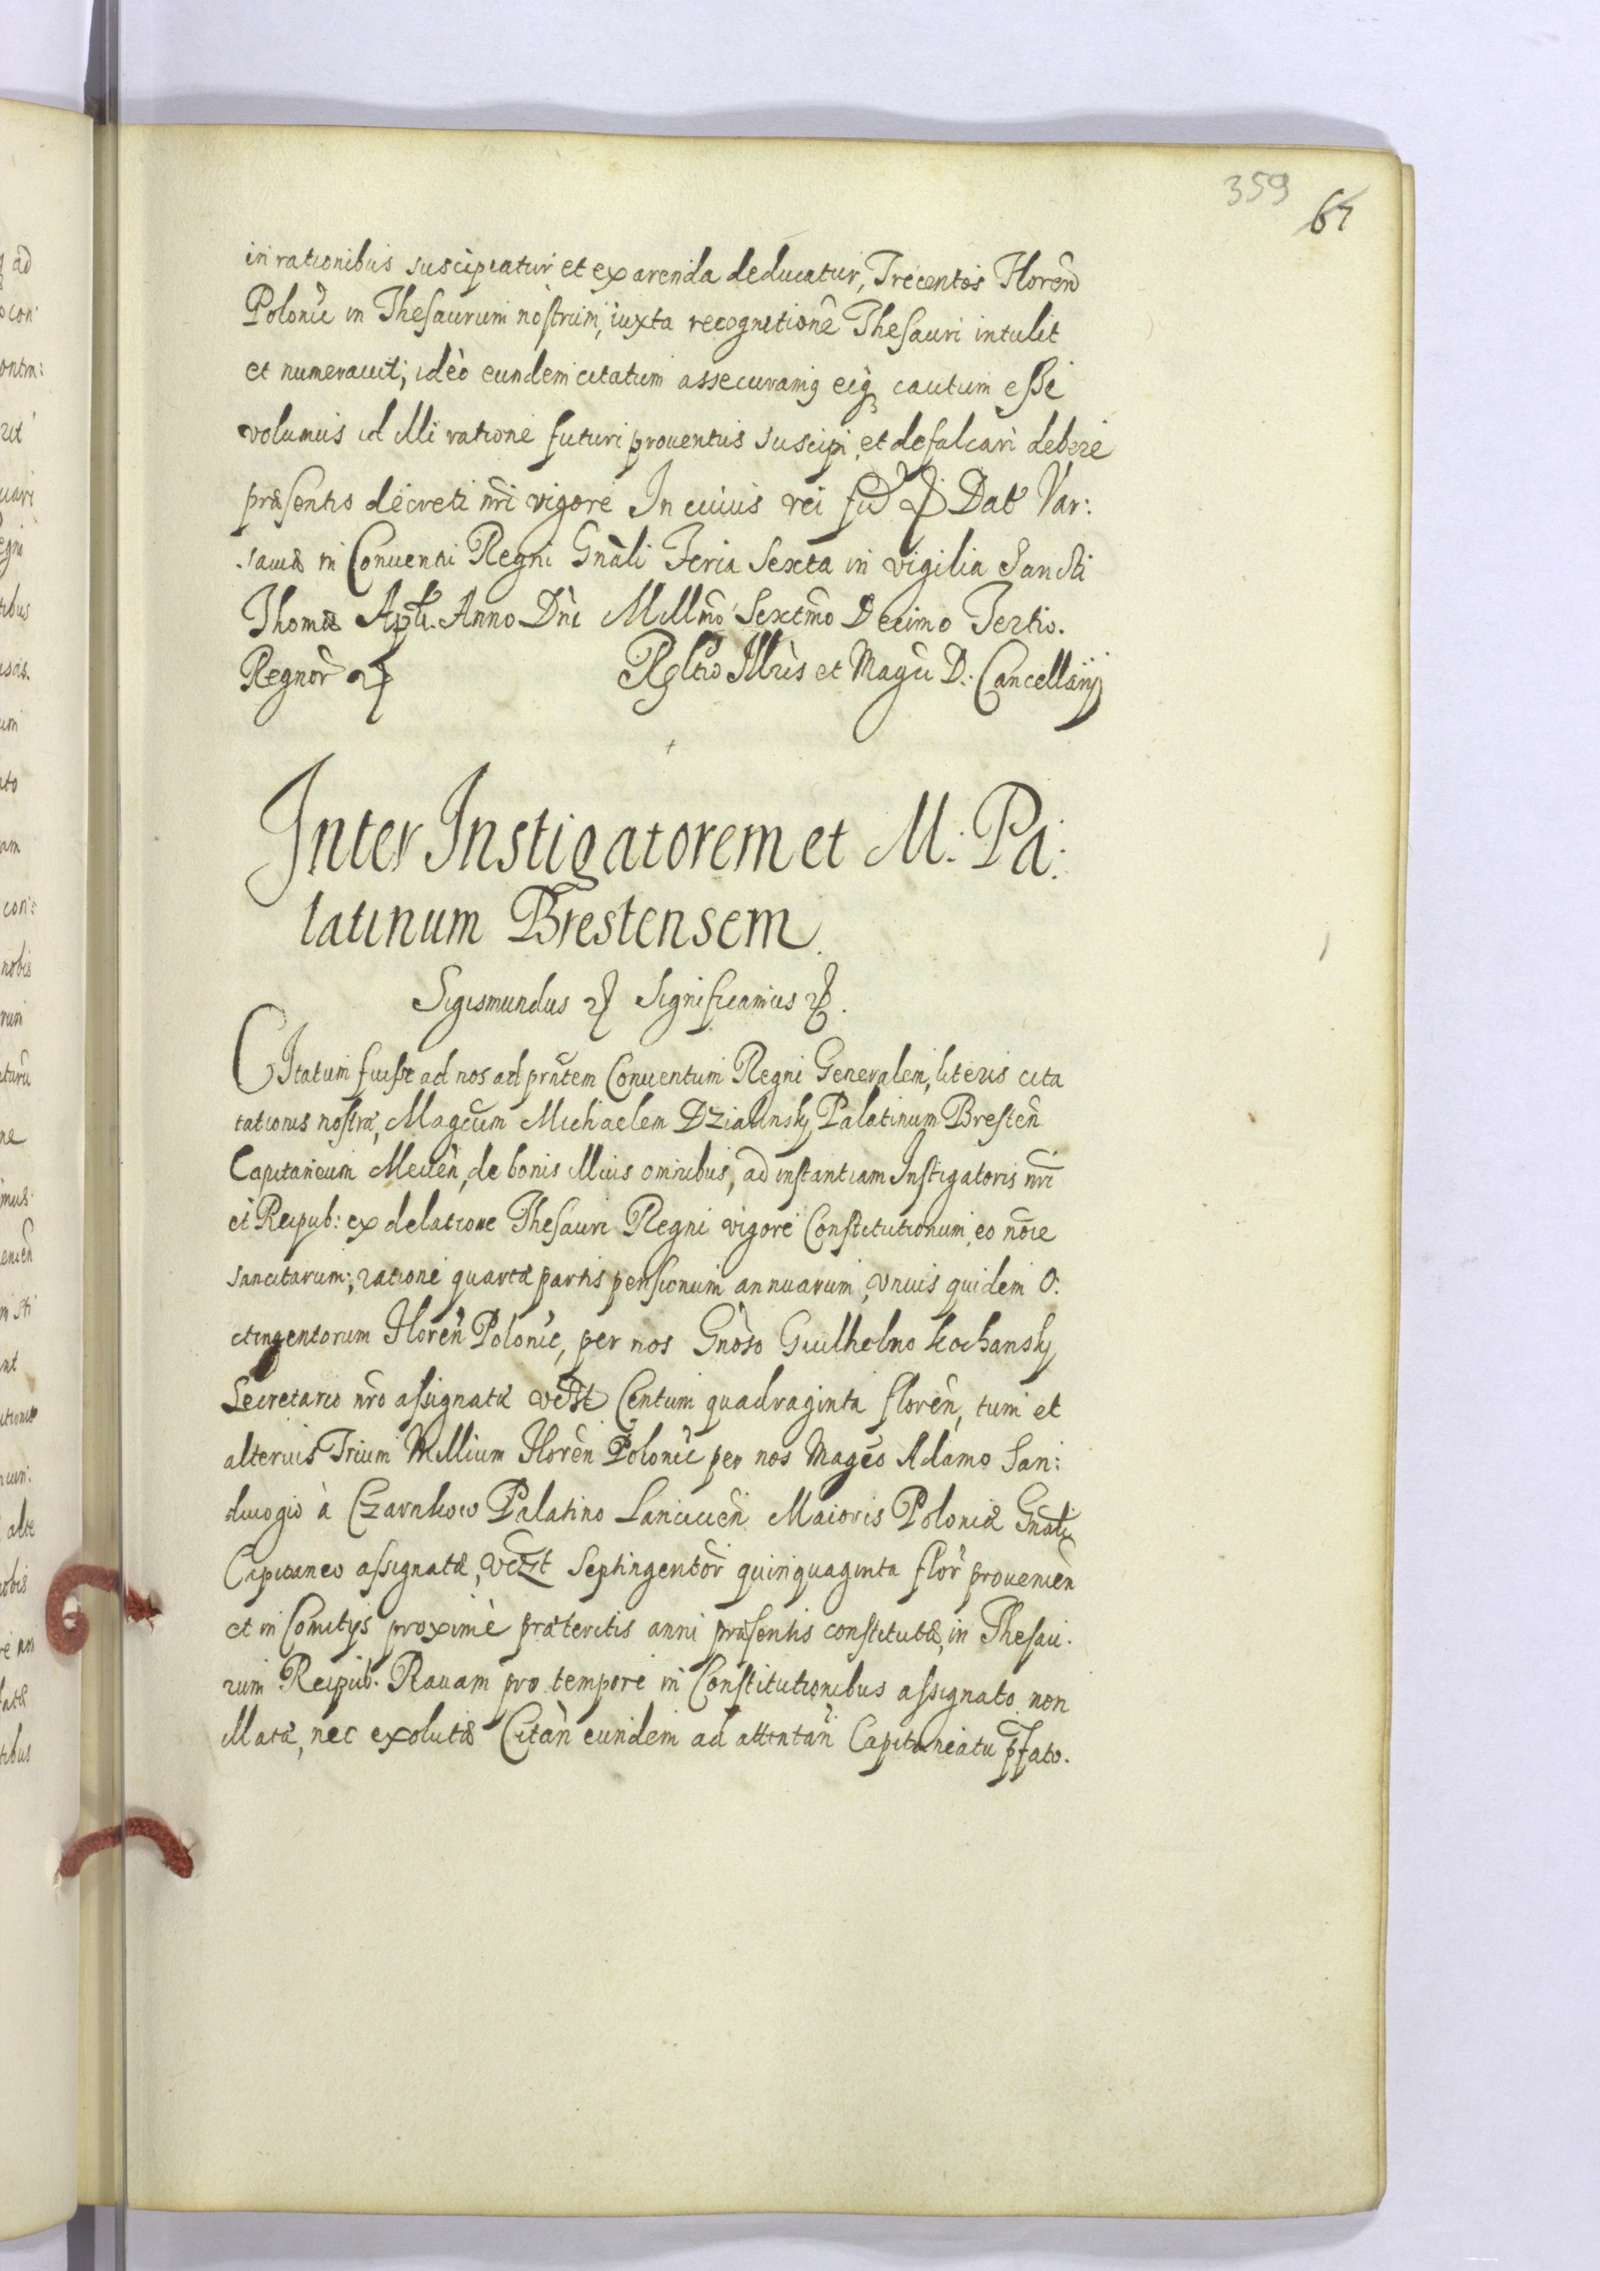 359
67
in rationibus suscipiatur et ex arenda deducatur, Trecentos Floreñ
Polonic̃ in Thesaurum nostrum, iuxta recognitionẽ Thesauri intulit
et numerauit; ideò eundem citatum assecuramus eiq3 cautum esse
volumus id illi ratione futuri prouentus suscipi et defalcari debere
præsentis decreti nr̃i vigore In cuius rei fid̃ Dat Var:
sauiæ in Conuentu Regni Gnãli Feria Sexta in vigilia Sancti
Thomæ Apl̃i. Anno Dñi Millmõ Sextmõ Decimo Tertio.
Regnor̃ Rel̃tio Illr̃is et Magc̃i D: Cancellarij
Inter Instigatorem et M: Pa:
latinum Brestensem
Sigismundus Significamus
CItatum fuisse ad nos ad prñtem Conuentum Regni Generalem, literis cita
tationis nostræ, Magc̃um Michaelem Dzialinsky Palatinum Bresteñ
Capitaneum Meueñ, de bonis illius omnibus, ad instantiam Instigatoris nr̃i
et Reipub: ex delatione Thesauri Regni vigore Constitutionum eo nõie
sancitarum; ratione quartæ partis pensionum annuarum, vnius quidem O:
ctingentorum Floreñ Polonic̃, per nos Gnõso Guilhelmo Kochansky
Secretario nr̃o assignatæ Centum quadraginta floreñ, tum et
alterius Trium Millium Floreñ Polonic̃ per nos Magc̃o Adamo San:
diuogio à Czarnkow Palatino Lanicieñ Maioris Poloniæ Gnãli
Capitaneo assignatæ, Septingentor̃ quinquaginta flor̃ prouenieñ
et in Comitijs proximè præteritis anni præsentis constitutæ, in Thesau:
rum Reipub. Rauam pro tempore in Constitutionibus assignato non
illatæ, nec exolutæ Citañ eundem ad attentañ Capitaneatu p̃fato.